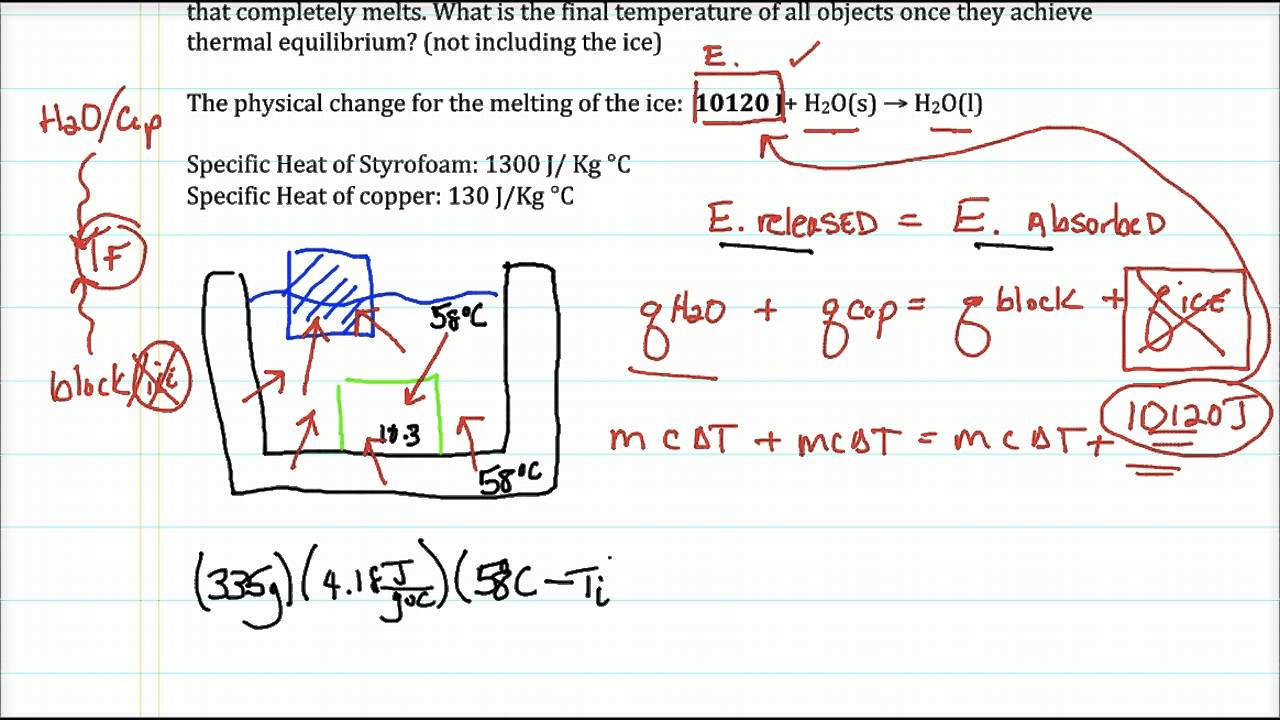 that completely melts. What is the final temperature of all objects once they achieve
thermal equilibrium? (not including the ice)
E. ✓
The physical change for the melting of the ice: 10120 J + H₂O(s) → H₂O(l)
H2O/Cop
Specific Heat of Styrofoam: 1300 J/ Kg °C
Specific Heat of copper: 130 J/Kg °C
E. released = E. Absorbed
TF
q H2O + q cop = q block + q ice
58°C
block/ice
10120J
m c ΔT + m c ΔT = m c ΔT +
58°C
(335g)(4.18 J/g°C)(58°C - Ti